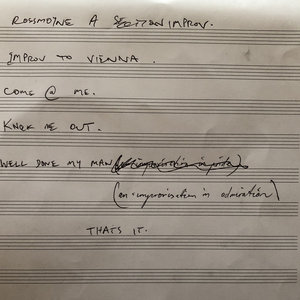 ROSSMOYNE A SECTION IMPROV.
IMPROV TO VIENNA.
COME @ ME.
KNOCK ME OUT.
WELL DONE MY MAN
(an improvisation in admiration)
THATS IT.